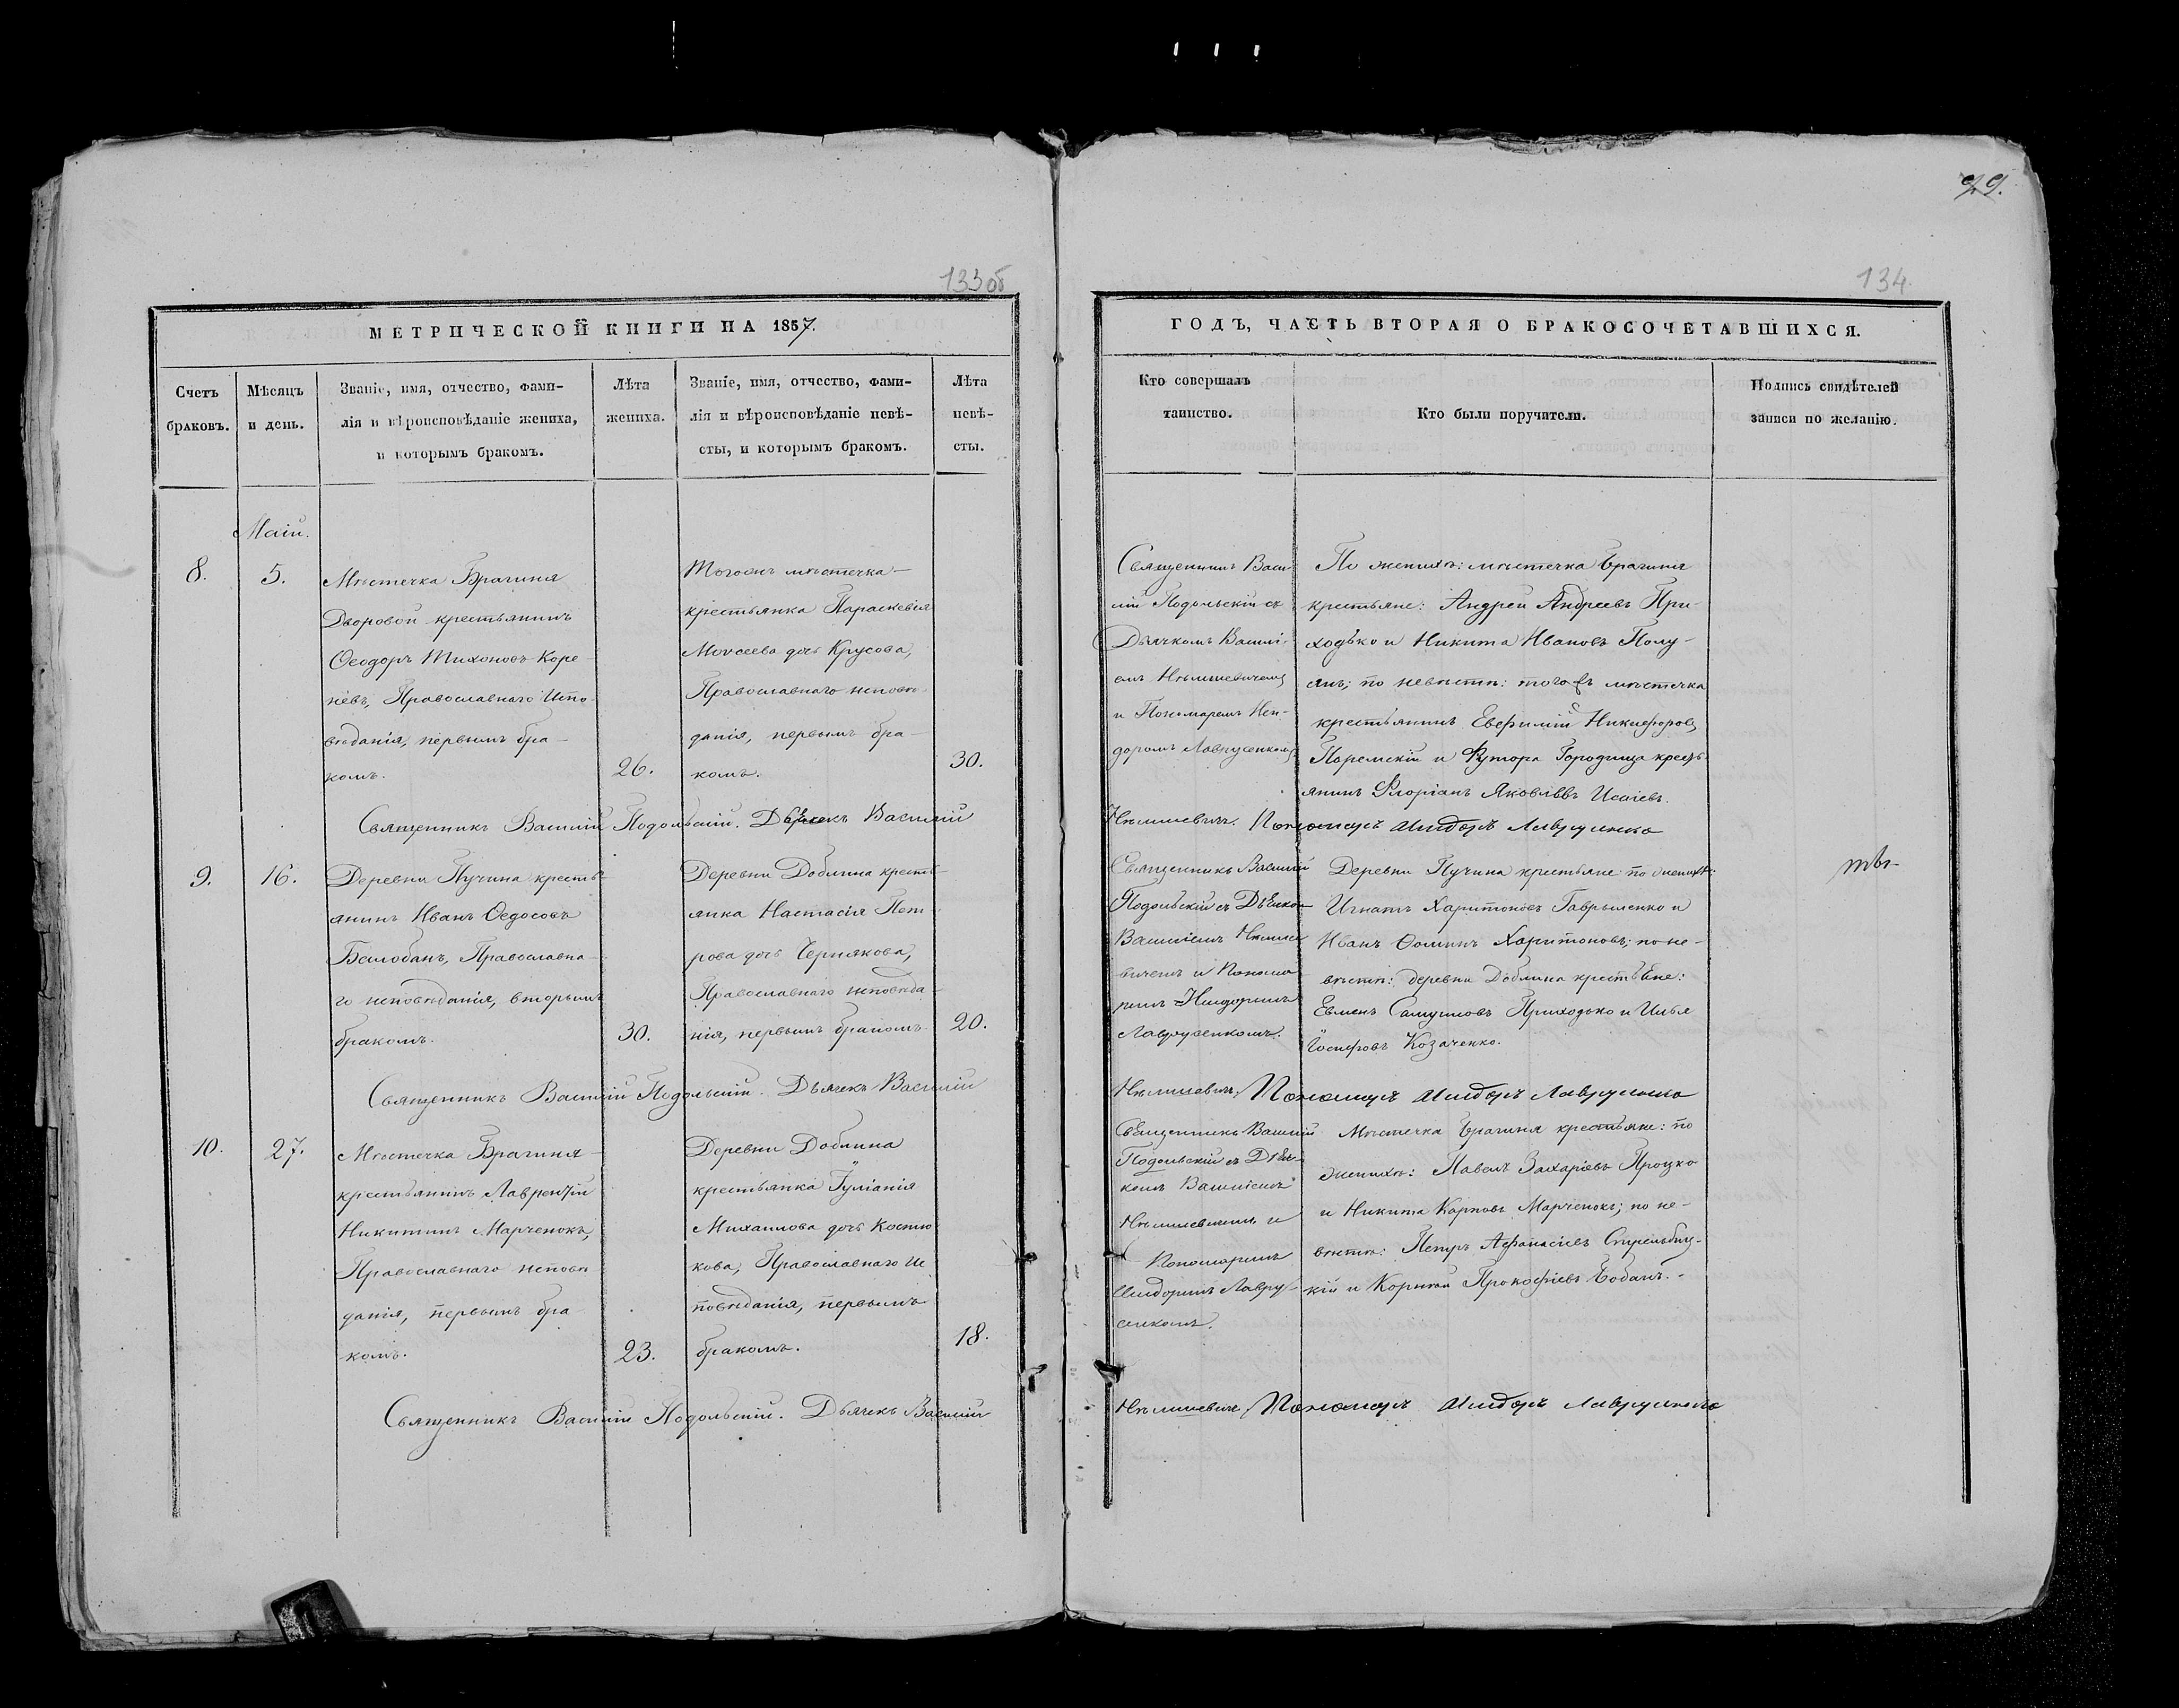 99.
133об
134
МЕТРИЧЕСКОЙ КНИГИ НА 1857.
Счетъ браковъ.
Мѣсяцъ и день.
Званіе, имя, отчество, фами-
лія и вѣроисповѣданіе жениха,
и которымъ бракомъ.
Лѣта жениха.
Званіе, имя, отчество, фами-
лія и вѣроисповѣданіе невѣ-
сты, и которымъ бракомъ.
Лѣта невѣ-
сты.
Маій.
8.
5.
Мѣстечка Брагиня
Дворовой крестьянинъ
Ѳеодоръ Тихоновъ Коре-
невъ, Православнаго Испо-
вѣданія, первымъ бра-
комъ.
26.
Тогожъ мѣстечка
крестьянка Параскевія
Моѵсеева дочь Крусова,
Православнаго исповѣ-
данія, первымъ бра-
комъ.
30.
Священникъ Василій Подольскій. Дьячекъ Василій
9.
16.
Деревни Пучина кресть-
янинъ Иванъ Ѳедосовъ
Белобанъ, Православна-
го исповѣданія, вторымъ
бракомъ.
30.
Деревни Доблина кресть-
янка Настасія Пет-
рова дочь Чернякова,
Православнаго исповѣда-
нія, первымъ бракомъ.
20.
Священникъ Василій Подольскій. Дьячекъ Василій
10.
27.
Мѣстечка Брагиня
крестьянинъ Лаврентій
Никитинъ Марченокъ,
Православнаго исповѣ
данія, первымъ бра-
комъ.
23.
Деревни Доблина
крестьянка Іуліанія
Михаилова дочь Костю
кова, Православнаго Ис
повѣданія, первымъ
бракомъ.
18.
Священникъ Василій Подольскій. Дьячекъ Василій
ГОДЪ, ЧАСТЬ ВТОРАЯ О БРАКОСОЧЕТАВШИХСЯ.
Кто совершалъ
таинство.
Кто были поручители.
Подпись свидѣтелей
записи по желанію.
Священникъ Васи
лій Подольскій съ
Дьячкомъ Васили-
емъ Нѣмшевичемъ
и Пономаремъ
доромъ Лаврусенкомъ
По женихѣ: мѣстечка Брагиня
крестьяне: Андрей Андреевъ При-
ходько и Никита Ивановъ Полу-
янъ; по невѣстѣ: тогожъ мѣстечка
крестьянинъ Евфимій Никифоровъ
Паремскій и Футора Городища кресть-
янинъ Флоріанъ Яковлевъ Исаіевъ.
Нѣмшевичъ. Пономарь Исидоръ Лаврусенко
Священникъ Василій
Подольскій съ Дьячкомъ
Василіемъ Нѣмше
вичемъ и Понома
ремъ Исидоромъ
Лаврусенкомъ.
Деревни Пучина крестьяне по женихѣ:
Игнатъ Харитоновъ Гаврыленко и
Иванъ Ѳоминъ Харитоновъ; по не-
вѣстѣ: деревни Доблина крестьяне:
Евменъ Самуиловъ Приходько и Илья
Іосифовъ Козаченко.
Нѣмшевичъ, Пономарь Исидоръ Лаврусенко
Священникъ Василій
Подольскій съ Дьяч-
комъ Василіемъ
Нѣмшевичемъ и
Пономаремъ
Исидоромъ Лавру-
сенкомъ.
Мѣстечка Брагиня крестьяне: по
женихѣ: Павелъ Захаріевъ Процко
и Никита Карповъ Марченокъ; по не-
вѣстѣ: Петръ Афанасіевъ Стрельбиц-
кій и Корнѣй Прокофіевъ Бобанъ.
Нѣмшевичъ, Пономарь Исидоръ Лаврусенко